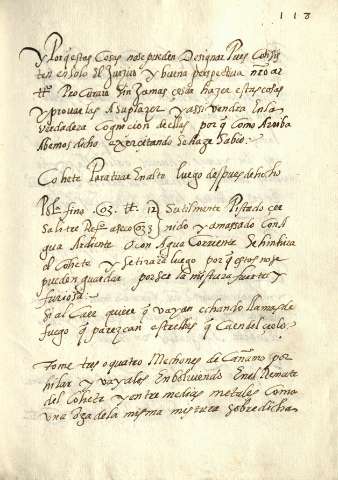 118
Y Porq̃ estas Cosas nose pueden Designar Pues Consis
ten en solo El Juizio y buena perspectiua nr̃o ar
Procurara sin zamas çesda hazer estas cosas
y prouarlas Asuplazer y assi vendra Enla
verdadera Cognicion dellas porq̃ como Arriba
Abemos dicho exerçitando sehaze sabio
Cohete Paratirar Enalto luego despues de hecho
fino 03 12 Sutilmente Pistado çer
Salitre 03 nido y amassado Con A
gua Ardiente O con Agua Corriente Sehinchira
el Cohete y setirara luego por q̃ estos nose
pueden guardar por ser la mistura fuerte y
furiosa
Si al Caer quiere q̃ vayan echando llamas de
fuego q̃ parezcan estrellas q̃ Caen del çielo
Tome tres o quatro Mechones de Cañamo por
hilar y vayales Enboluiendo Enel Remate
del Cohete y entre medias metales Como
vna onza dela misma mistura sobre dicha